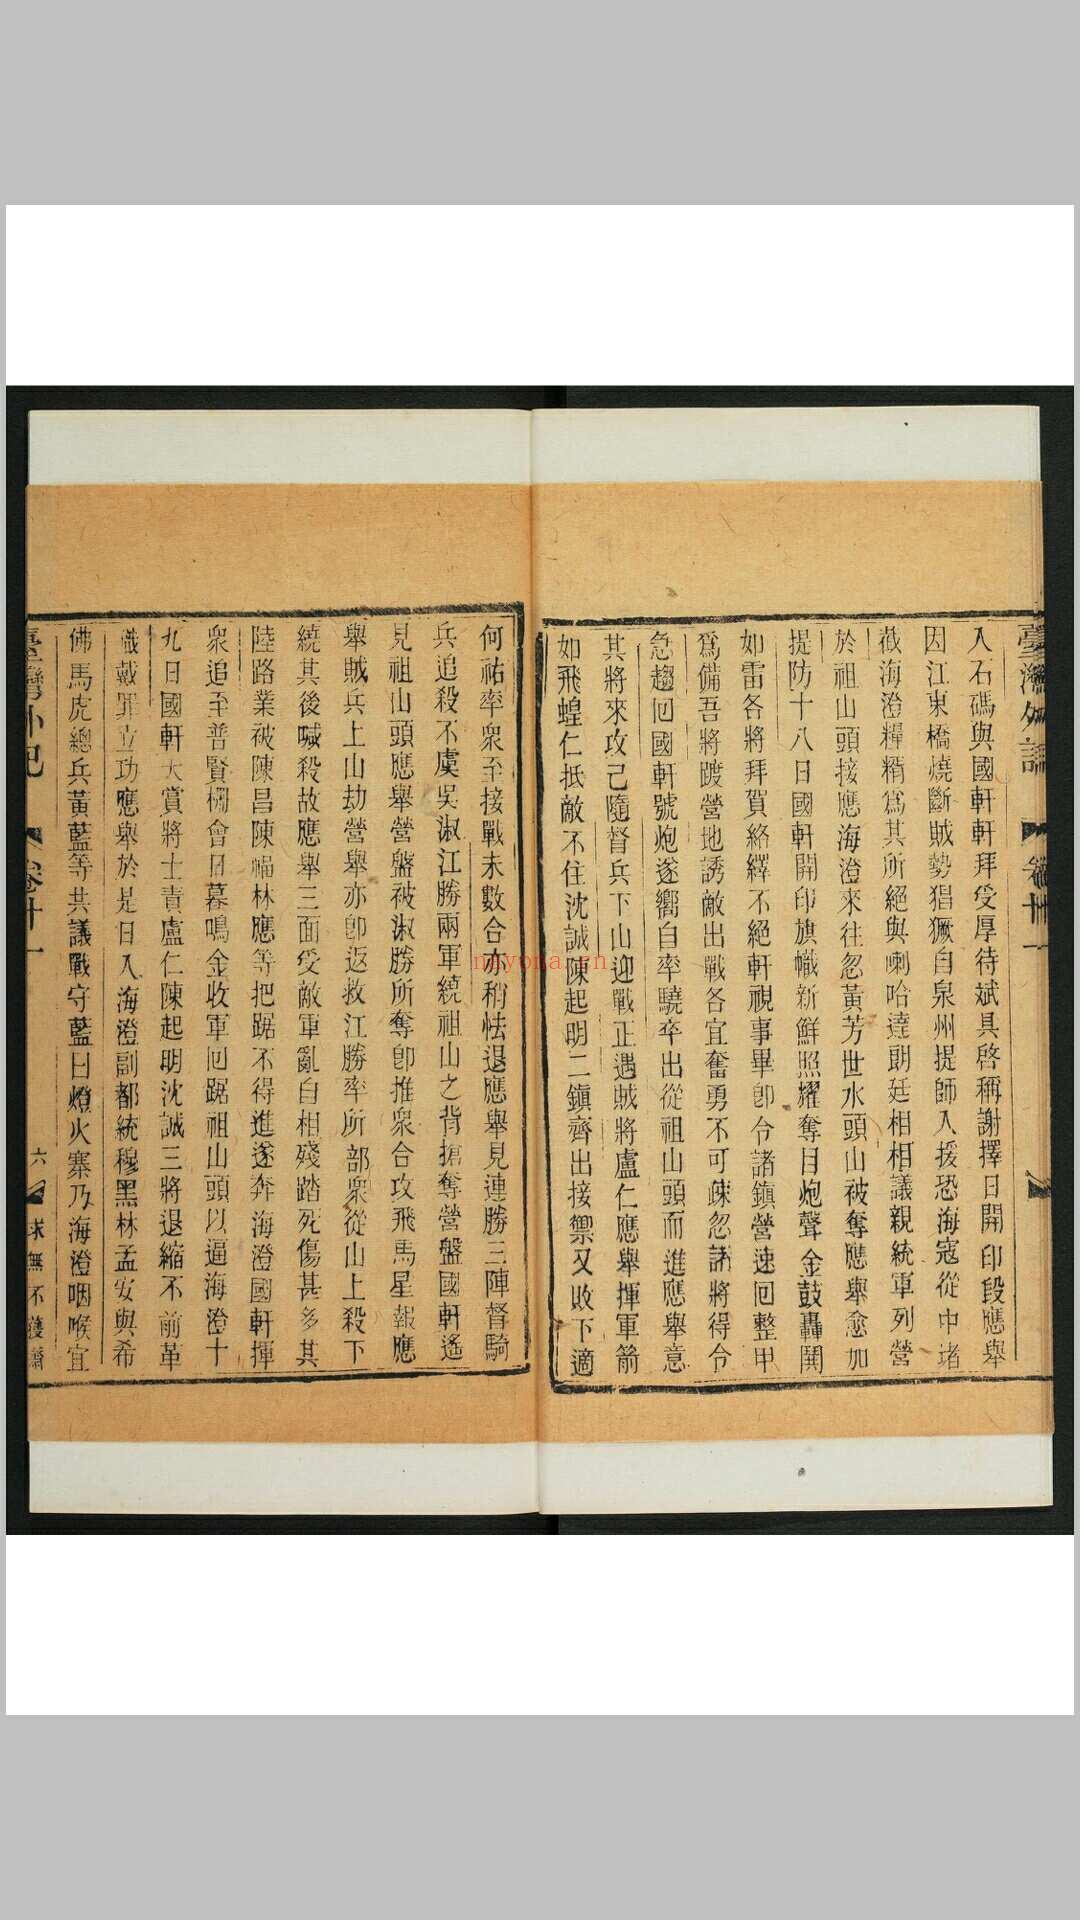 臺灣外記 卷廿一
入石碼與國軒軒拜受厚待斌具啓稱謝擇日開印段應舉
因江東橋燒斷賊勢猖獗自泉州提師入援恐海寇從中堵
截海澄糧糈爲其所絕與喇哈達朗廷相相議親統軍列營
於祖山頭接應海澄來往忽黃芳世水頭山被奪應舉愈加
提防十八日國軒開印旗幟新鮮照耀奪目炮聲金鼓轟闐
如雷各將拜賀絡繹不絕軒視事畢卽令諸鎮營速回整甲
爲備吾將踱營地誘敵出戰各宜奮勇不可疎忽諸將得令
急趨回國軒號炮遂嚮自率驍卒出從祖山頭而進應舉意
其將來攻己隨督兵下山迎戰正遇賊將盧仁應舉揮軍箭
如飛蝗仁抵敵不住沈誠陳起明二鎮齊出接禦又敗下適
何祐率衆至接戰未數合亦稍怯退應舉見連勝三陣督騎
兵追殺不虞吳淑江勝兩軍繞祖山之背搶奪營盤國軒遙
見祖山頭應舉營盤被淑勝所奪卽推衆合攻飛馬星報應
舉賊兵上山劫營舉亦卽返救江勝率所部衆從山上殺下
繞其後喊殺故應舉三面受敵軍亂自相殘踏死傷甚多其
陸路業被陳昌陳福林應等把踞不得進遂奔海澄國軒揮
衆追至普賢柵會日暮鳴金收軍回踞祖山頭以逼海澄十
九日國軒大賞將士責盧仁陳起明沈誠三將退縮不前革
職戴罪立功應舉於是日入海澄副都統穆黑林孟安與希
佛馬虎總兵黃藍等共議戰守藍曰燈火寨乃海澄咽喉宜
臺灣外記 卷廿一 六 求無不獲齋